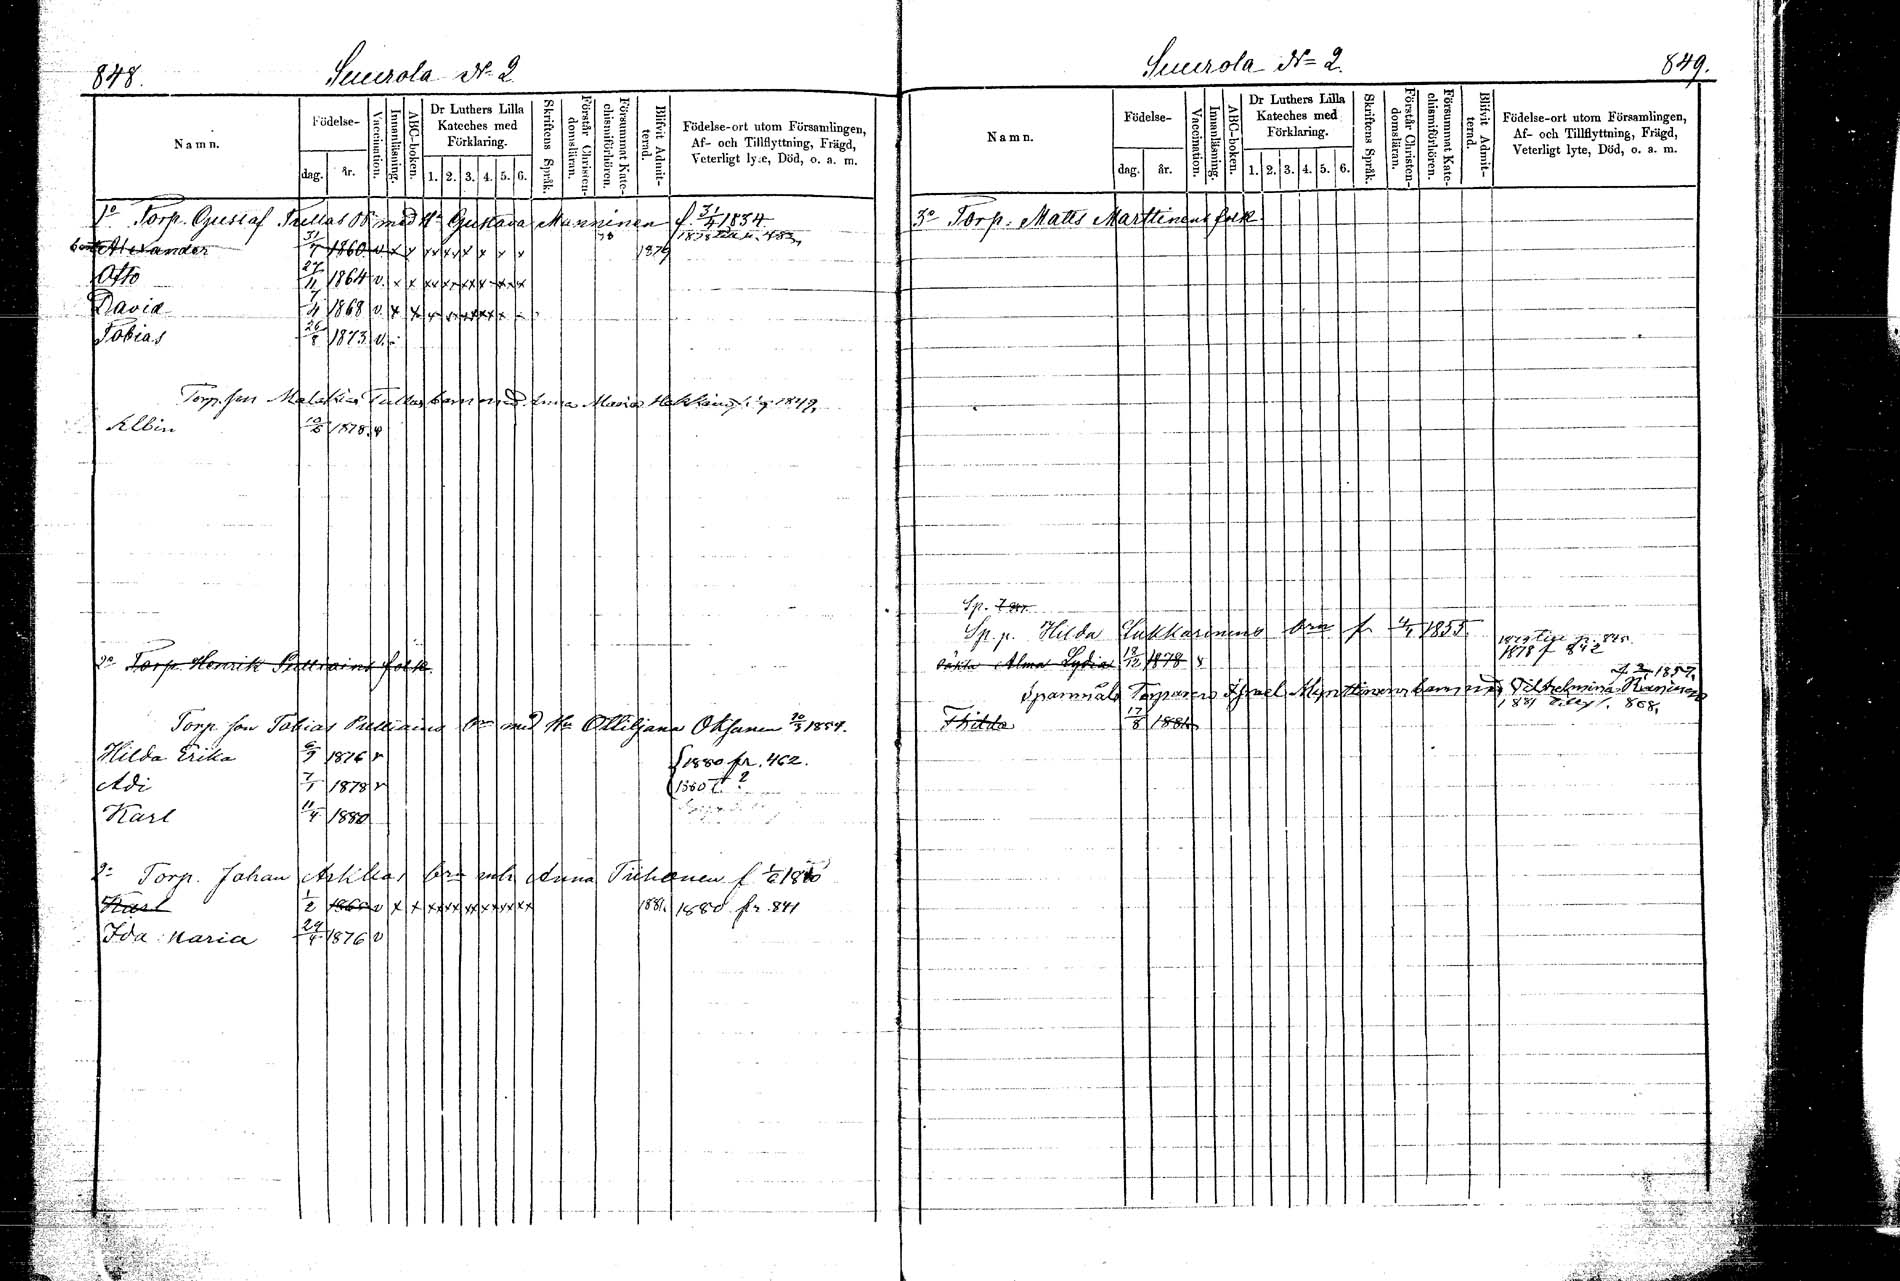 848.
Suurola No 2
Namn.
Födelse-
dag.
år.
Vaccination.
Innanläsning.
ABC-boken.
Dr Luthers Lilla
Kateches med
Förklaring.
1. 2. 3. 4. 5. 6.
Skriftens Språk.
Förstår Christen-
domsläran.
Försummat Kate-
chismiförhören.
Blifvit Admit-
terad.
Födelse-ort utom Församlingen,
Af- och Tillflyttning, Frägd,
Veterligt lyte, Död, o. a. m.
1o Torp. Gustaf Tullas med Hu Gustava Manninen f 31/4 1834
Alexander 31/7 1860 v x x xx xx x x x 1879
Otto 27/11 1864 v. x x
David 7/4 1868 v. x x
Tobias 26/8 1873 v.
Torp. son Malakias Tullas barn med Anna Maria 1849,
Albin 10/5 1878 v
2o Torp. Henrik Pulliains folk
Torp. son Tobias Pulliains brn med Hu Ottiljana Oksanen 20/3 1854.
Hilda Erika 6/9 1876 v 1880 fr. 462.
Adi 7/1 1878 v 1880 t. ?
Karl 11/4 1880
2o Torp. Johan Askikas brn mh Anna Tiihonen f 1/6
Karl 1/2 v x x 1881. 1880 fr. 841
Ida Maria 29/4 1876 v
Suurola No 2.
849.
Namn.
Födelse-
dag.
år.
Vaccination.
Innanläsning.
ABC-boken.
Dr Luthers Lilla
Kateches med
Förklaring.
1. 2. 3. 4. 5. 6.
Skriftens Språk.
Förstår Christen-
domsläran.
Försummat Kate-
chismiförhören.
Blifvit Admit-
terad.
Födelse-ort utom Församlingen,
Af- och Tillflyttning, Frägd,
Veterligt lyte, Död, o. a. m.
3o Torp. Matts Marttinens folk
Sp.
Sp. p. Hilda Lukkarinens brn f. 4/1 1855.
1879 till p. 845.
1878 f 842
oäkta Alma Lydia 18/12 1878 v
f. 1857,
Spannmåls Torparen Israel Mynttinens barn med Vilhelmina
Thilda 17/8 1881
1881 868,